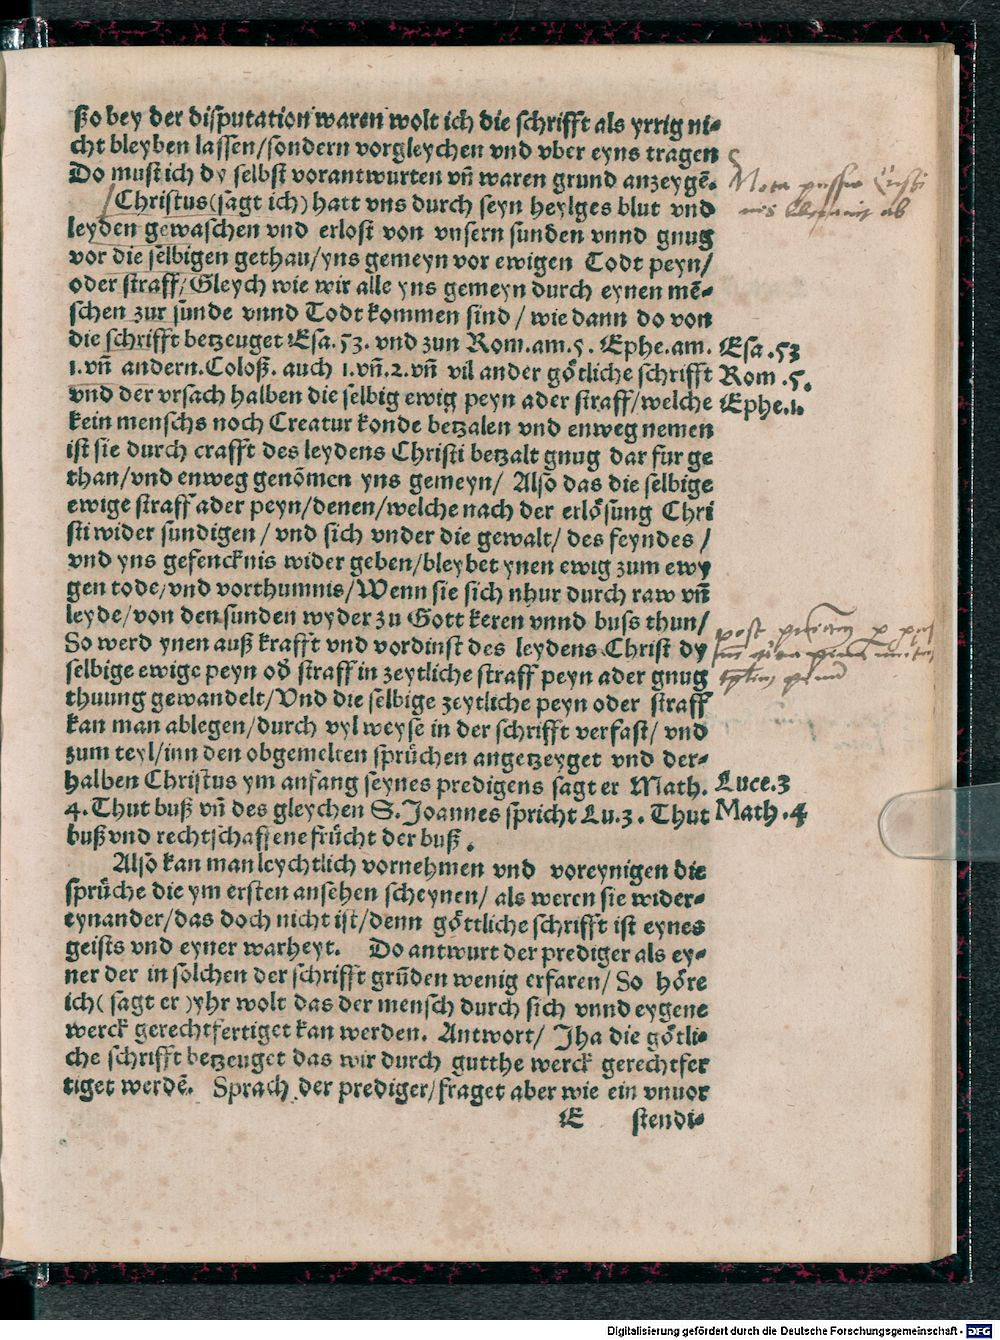 ßo bey der disputation waren wolt ich die schrifft als yrrig ni-
cht bleyben lassen/sondern vorgleychen vnd vber eyns tragen
Do must ich dy selbst vorantwurten vñ waren grund anzeygē.
Christus(sagt ich) hatt vns durch seyn heylges blut vnd
leyden gewaschen vnd erlost von vnsern sunden vnnd gnug
vor die selbigen gethan/yns gemeyn vor ewigen Todt peyn/
oder straff/Gleych wie wir alle yns gemeyn durch eynen mē-
schen zur sunde vnnd Todt kommen sind / wie dann do von
die schrifft betzeuget Esa.53. vnd zun Rom.am.5. Ephe.am.
1.vñ andern.Coloß. auch 1.vñ.2.vñ vil ander götliche schrifft
vnd der vrsach halben die selbig ewig peyn ader straff/welche
kein menschs noch Creatur konde betzalen vnd enweg nemen
ist sie durch crafft des leydens Christi betzalt gnug dar fur ge
than/vnd enweg genōmen yns gemeyn/ Also das die selbige
ewige straff ader peyn/denen/welche nach der erlösung Chri
sti wider sundigen / vnd sich vnder die gewalt/ des feyndes /
vnd yns gefencknis wider geben/bleybet ynen ewig zum ewy
gen tode/vnd vorthumnis/Wenn sie sich nhur durch raw vñ
leyde/von den sunden wyder zu Gott keren vnnd buss thun/
So werd ynen auß krafft vnd vordinst des leydens Christ dy
selbige ewige peyn oð straff in zeytliche straff peyn ader gnug
thuung gewandelt/Vnd die selbige zeytliche peyn oder straff
kan man ablegen/durch vyl weyse in der schrifft verfast/ vnd
zum teyl/inn den obgemelten sprüchen angetzeyget vnd der-
halben Christus ym anfang seynes predigens sagt er Math.
4.Thut buß vñ des gleychen S.Joannes spricht Lu.3. Thut
buß vnd rechtschaffene frücht der buß.
Also kan man leychtlich vornehmen vnd voreynigen die
sprüche die ym ersten ansehen scheynen/ als weren sie wider-
eynander/das doch nicht ist/denn göttliche schrifft ist eynes
geists vnd eyner warheyt. Do antwurt der prediger als ey-
ner der in solchen der schrifft grūden wenig erfaren/ So höre
ich( sagt er )yhr wolt das der mensch durch sich vnnd eygene
werck gerechtfertiget kan werden. Antwort/ Jha die götli-
che schrifft betzeuget das wir durch gutthe werck gerechtfer
tiget werdē. Sprach der prediger/fraget aber wie ein vnuor
E stendi-
Nota passio
Esa.53
Rom.5.
Ephe.1.
post
Luce.3
Math.4
Digitalisierung gefördert durch die Deutsche Forschungsgemeinschaft - DFG